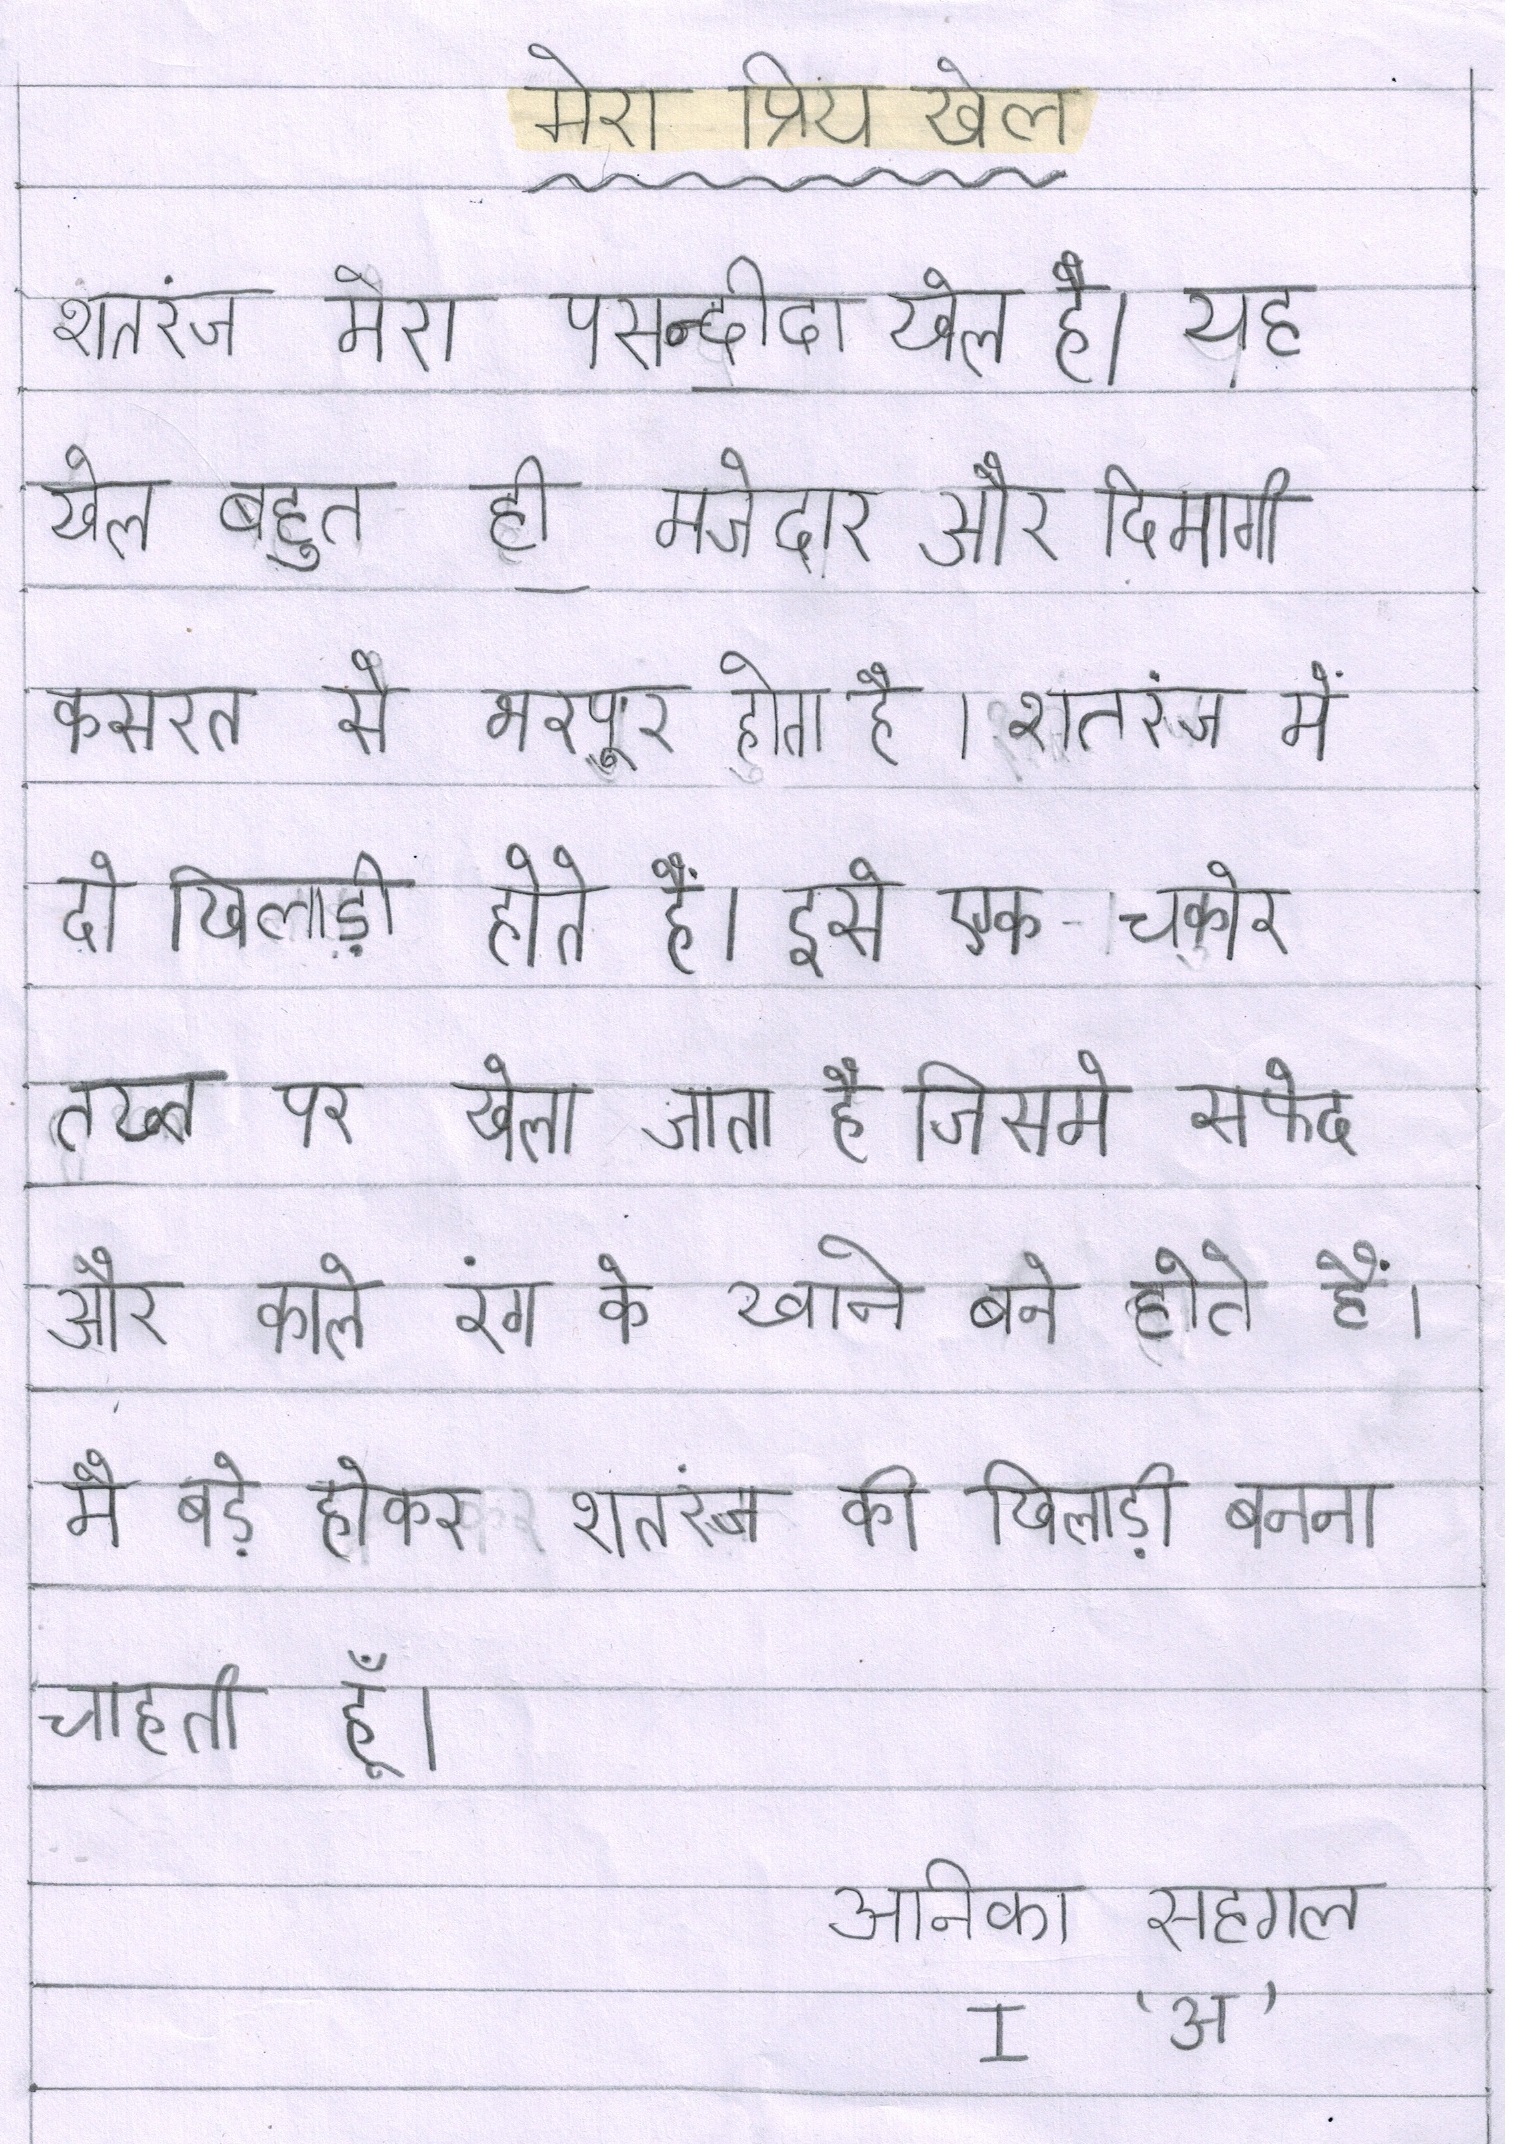 मेरा प्रिय खेल
शतरंज मेरा पसन्दीदा खेल है। यह
खेल बहुत ही मजेदार और दिमागी
कसरत से भरपूर होता है । शतरंज में
दो खिलाड़ी होते हैं। इसे एक चकोर
तख्त पर खेला जाता है जिसमे सफेद
और काले रंग के खाने बने होते हैं।
मै बड़े होकर शतरंज की खिलाड़ी बनना
चाहती हूँ।
अनिका सहगल
I 'अ'